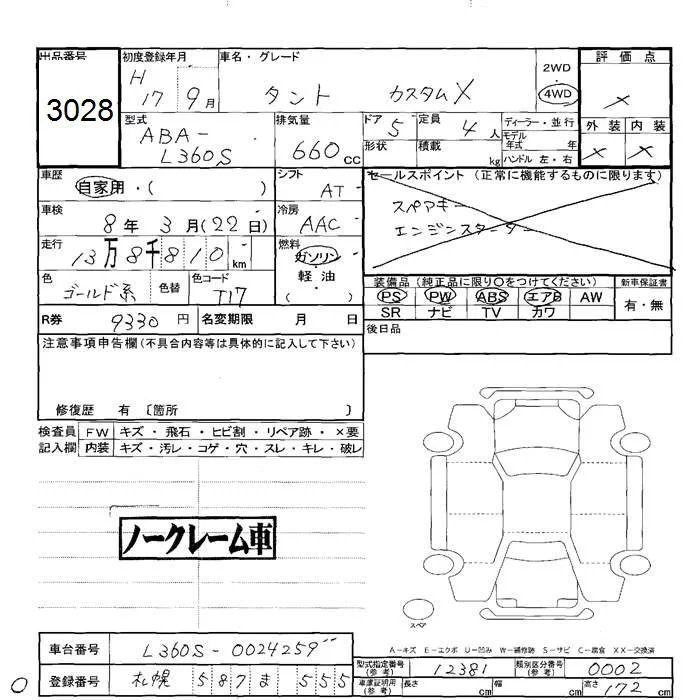 出品番号 初度登録年月 車名・グレード 2WD 評価点
3028 H17 9月 タント カスタムX 4WD ×
型式 排気量 ドア 定員 ディーラー・並行 外装 内装
ABA-L360S 660cc 5 4人 モデル年式 年 × ×
形状 積載 kg ハンドル 左・右
車歴 シフト セールスポイント (正常に機能するものに限ります)
自家用・( ) AT
スペアキー
車検 8年 3月(22日) 冷房 AAC
エンジンスターター
走行 13万8千810km 燃料 ガソリン
軽・油
( )
色 ゴールド系 色替 色コード T17
装備品 (純正品に限り○をつけてください) 新車保証書
PS PW ABS エアB AW 有・無
SR ナビ TV カワ
R券 9330円 名変期限 月 日
後日品
注意事項申告欄(不具合内容等は具体的に記入して下さい)
修復歴 有 〔箇所 〕
検査員 FW キズ・飛石・ヒビ割・リペア跡・×要
記入欄 内装 キズ・汚レ・コゲ・穴・スレ・キレ・破レ
ノークレーム車
スペア
A-キズ E-エクボ U-凹み W-補修跡 S-サビ C-腐食 XX-交換済
車台番号 L360S-0024259
型式指定番号(参考) 12381 類別区分番号(参考) 0002
登録番号 札幌 587ま555
車庫証明用(参考) 長さ cm 幅 cm 高さ 172cm